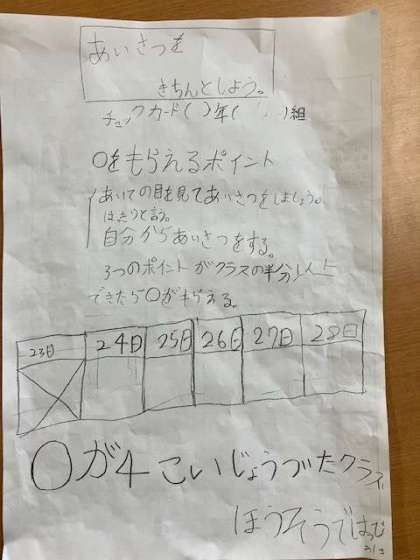 あいさつを
きちんとしよう。
チェックカード( )年( )組
〇をもらえるポイント
あいての目を見てあいさつをしましょう。
はきりと言う。
自分からあいさつをする。
3つのポイントがクラスの半分以上
できたら〇がもらえる。
23日 24日 25日 26日 27日 28日
〇が4こいじょうついたクラス
ほうそうではっ